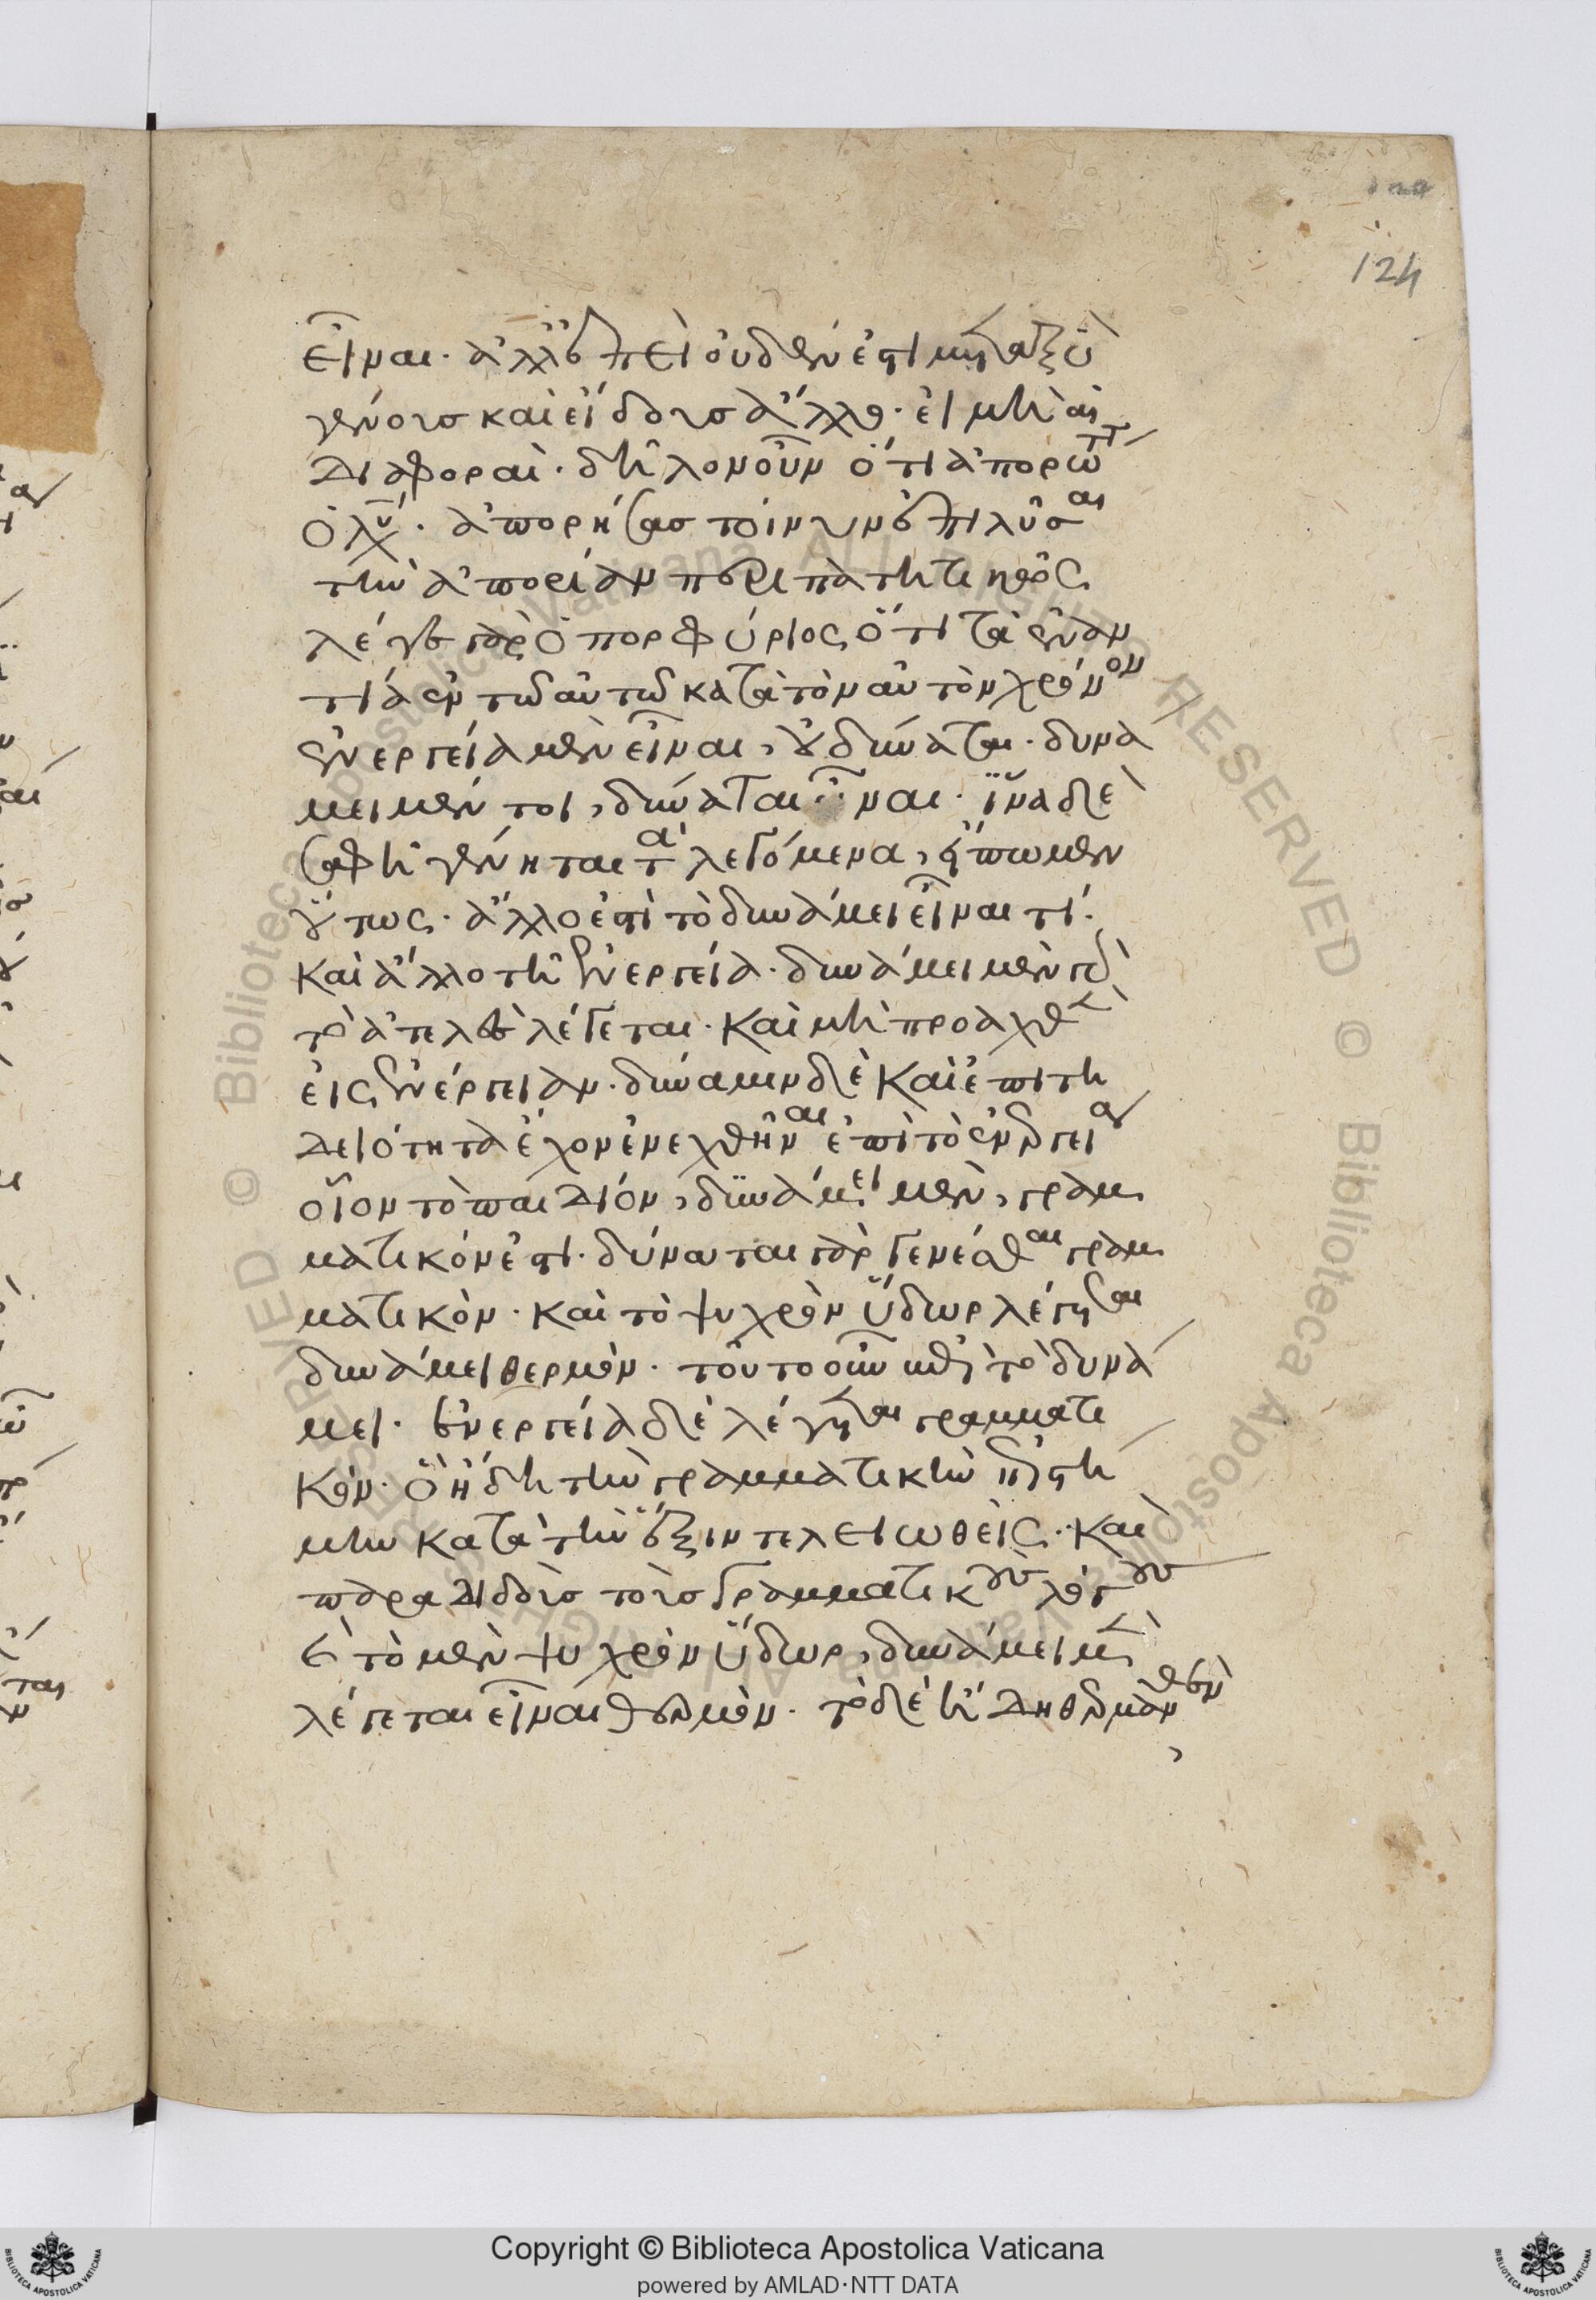 εἶναι. ἀλλ' ἐπεὶ οὐδέν ἐστι μεταξὺ
γένους καὶ εἴδους ἄλλο. εἰ μὴ αἱ
διαφοραὶ. δῆλον οὖν ὅτι ἀπορώτ
ὁ λύ. ἀπορήσας τοίνυν ἐπιλύσαι
τὴν ἀπορίαν περιπατητικῶς
λέγει γὰρ ὁ πορφύριος ὅτι τὰ ἐναν
τία ἐν τῶ αὐτῶ κατὰ τὸν αὐτὸν χρόνον
ἐνεργεία μὲν εἶναι, οὐ δύναται. δυνά
μει μέν τοι, δύναται εἶναι. ἵνα δὲ
σαφῆ γένηται τὰ λεγόμενα, εἴπωμεν
οὕτως. ἄλλο ἐστὶ τὸ δυνάμει εἶναί τι.
καὶ ἄλλο τῆ ἐνεργεία. δυνάμει μὲν γὰρ
τὸ ἀτελὲς λέγεται. καὶ μὴ προαχθὲν
εἰς ἐνέργειαν. δύναμιν δὲ καὶ ἐπιτη
δειότητα ἔχον ἐνεχθῆναι ἐπὶ τὸ ἐνεργεία
οἷον τὸ παιδίον, δυνάμει μὲν, γραμ
ματικόν ἐστι. δύναται γὰρ γενέσθαι γραμ
ματικὸν. καὶ τὸ ψυχρὸν ὕδωρ λέγεται
δυνάμει θερμὸν. τοῦτο οὖν μὲν τὸ δυνά
μει. ἐνεργεία δὲ λέγεται γραμματι
κὸν. ὁ ἤδη τὴν γραμματικὴν ἐπιστή
μην κατὰ τὴν ἕξιν τελειωθεὶς. καὶ
παραδιδοὺς τοὺς γραμματικοὺς λόγους
καὶ τὸ μὲν ψυχρὸν ὕδωρ, δυνάμει μὲν
λέγεται εἶναι θερμὸν. τὸ δὲ ἤδη θερμανθὲν
,
124
Copyright © Biblioteca Apostolica Vaticana
powered by AMLAD·NTT DATA